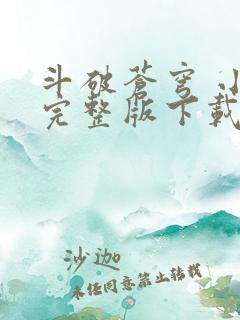 斗破苍穹
完整版下载
沙迦
未任同意禁止转载